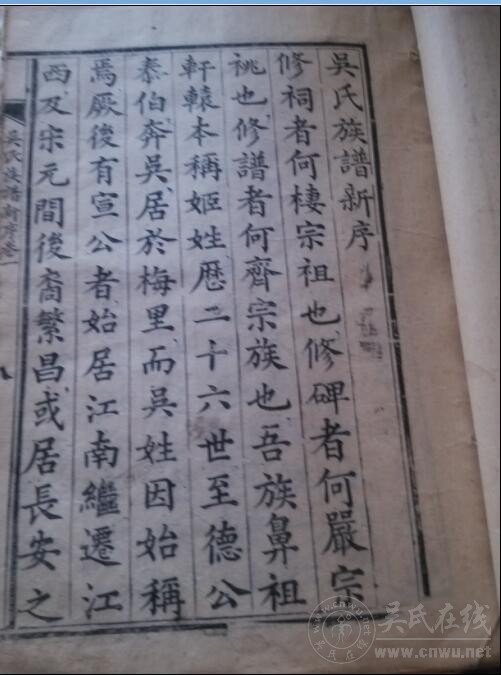 吳氏族譜新序
修祠者何棲宗祖也修碑者何嚴宗
祧也修譜者何齊宗族也吾族鼻祖
軒轅本稱姬姓歷二十六世至德公
泰伯奔吳居於梅里而吳姓因始稱
焉厥後有宣公者始居江南繼遷江
西及宋元間後裔繁昌或居長安之
吳氏族譜新序卷一
吴氏在线
www.cnwu.net